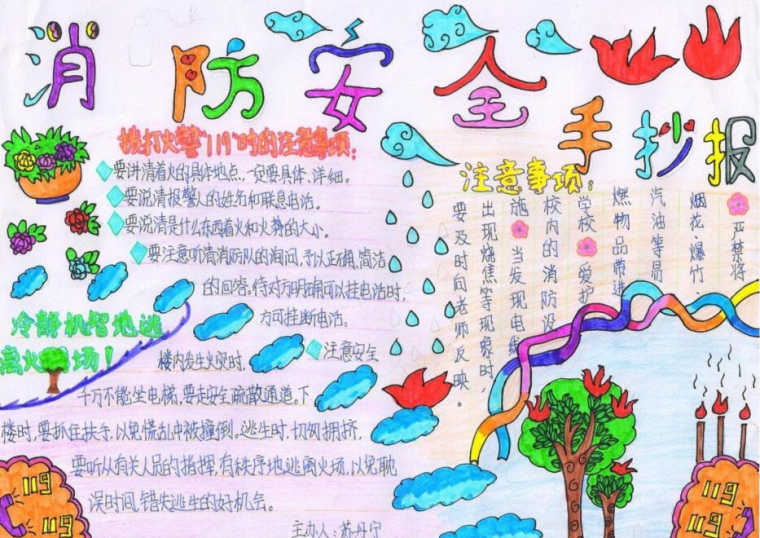 消防安全
手抄报
拨打火警"119"时的注意事项:
要讲清着火的具体地点,一定要具体、详细。
要说清报警人的姓名和联系电话。
要说清是什么东西着火和火势的大小。
要注意听清消防队的询问,予以正确,简洁
的回答,待对方明确可以挂电话时,
方可挂断电话。
冷静机智地逃
离火场!
注意安全
楼内发生火灾时,
千万不能坐电梯,要走安全疏散通道。下
楼时,要抓住扶手,以免慌乱中被撞倒。逃生时,切勿拥挤,
要听从有关人员的指挥,有秩序地逃离火场,以免耽
误时间,错失逃生的好机会。
主办人:苏丹宁
注意事项:
严禁将
烟花爆竹、
汽油等易
燃物品带进
学校 爱护
校内的消防设
施 当发现电线
出现烧焦等现象时,
要及时向老师反映。
119
119
119
119